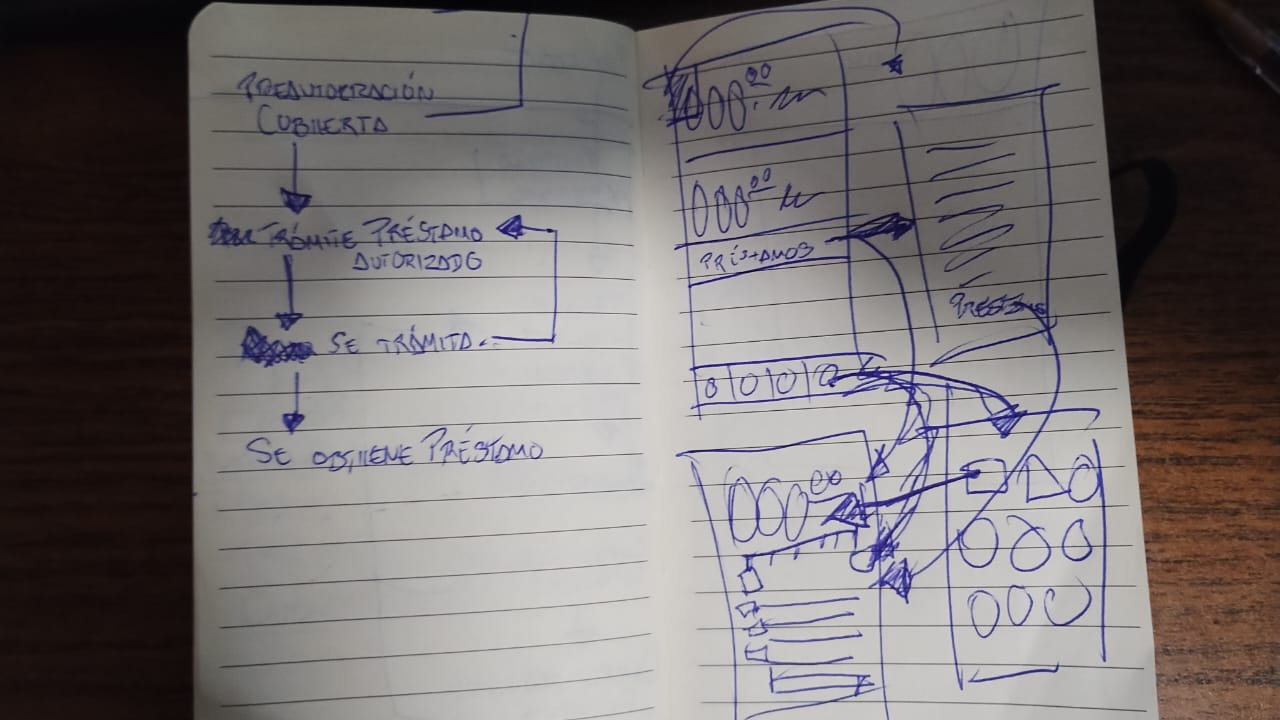 PREAUTORIZACIÓN
CUBIERTA
TRÁMITE PRÉSTAMO
AUTORIZADO
SE TRÁMITA
SE OBTIENE PRÉSTAMO
000.00
000.00
PRÉSTAMOS
0 0 0 0
000.00